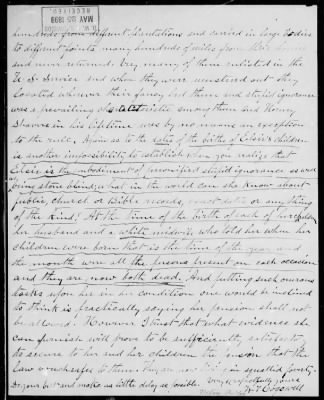 MAY 25 1899
RECEIVED
hundreds from different plantations and carried in large bodies
to different points many hundreds of miles from their homes
and never returned. Very many of them enlisted in the
U. S. Service and when they were mustered out they
located wherever their fancy led them and stupid ignorance
was a prevailing characteristic among them and Henry
in his lifetime was by no means an exception
to the rule. Again as to the dates of the births of Elsie's children
is another impossibility to establish when you realize that
Elsie is the embodiment of personified stupid ignorance as well as
being stone blind, what in the world can she know about
public, church or Bible records, exact dates or anything
of the kind! At the time of the birth of each of her children
her husband and a white midwife who told her when her
children were born that is the time of the year and
the month were all the persons present on each occasion
and they are now both dead. And putting such onerous
tasks upon her in her condition one would be inclined
to think is practically saying her pension shall not
be allowed. However I trust that what evidence she
can furnish will prove to be sufficiently satisfactory
to secure to her and her children the pension that the
law vouchsafes to them; they are now in squalled poverty.
Do your best and make as little delay as possible. Very respectfully yours